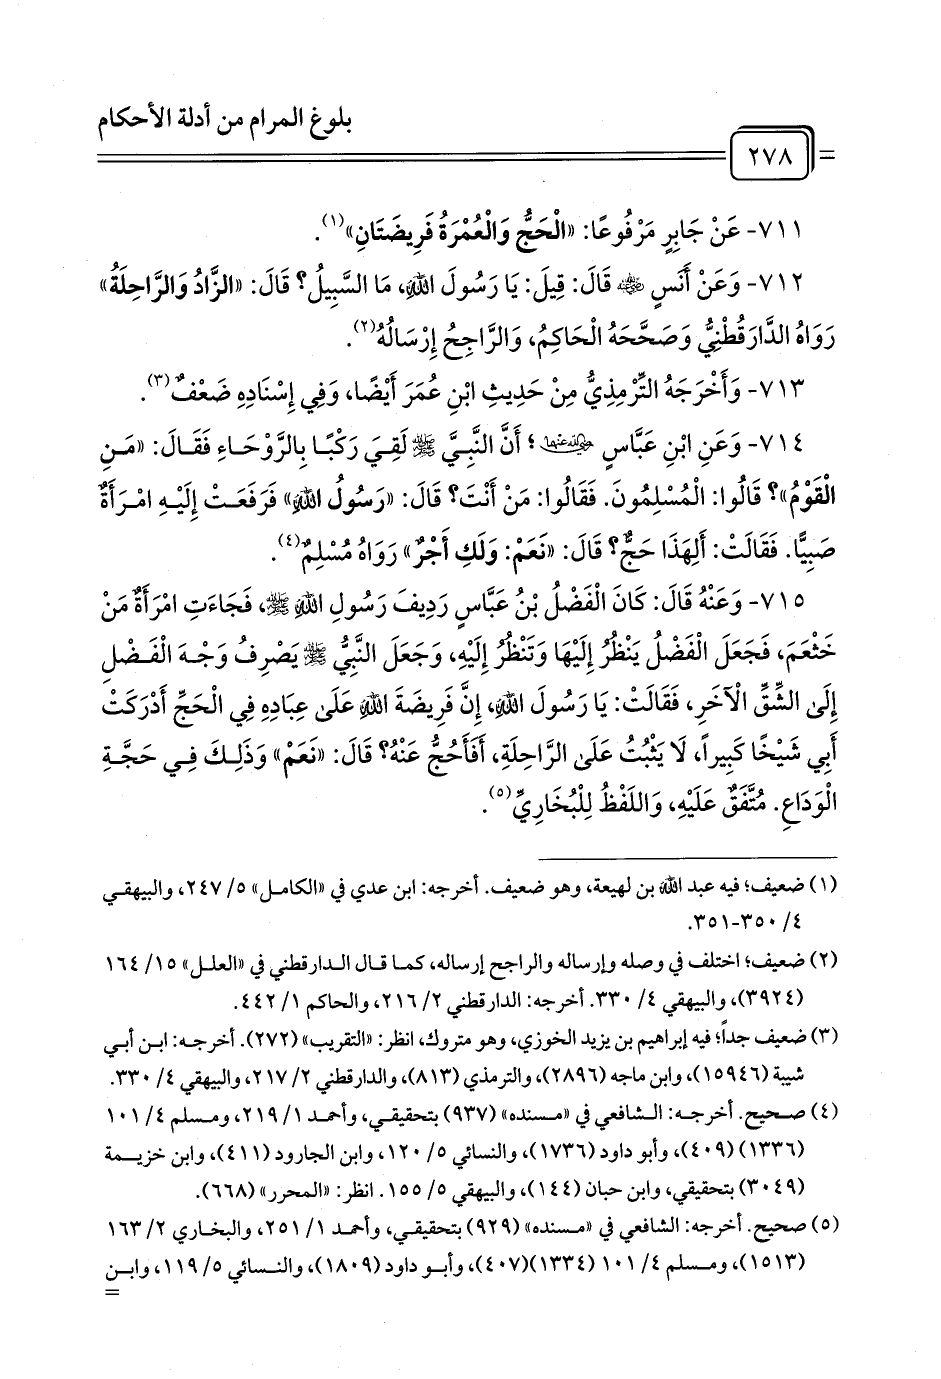 بلوغ المرام من أدلة الأحكام
٢٧٨
٧١١- عَنْ جَابِرٍ مَرْفُوعًا: «الْحَجُّ وَالْعُمْرَةُ فَرِيضَتَانِ»(١).
٧١٢- وَعَنْ أَنَسٍ ﵁ قَالَ: قِيلَ: يَا رَسُولَ اللهِ، مَا السَّبِيلُ؟ قَالَ: «الزَّادُ وَالرَّاحِلَةُ»
رَوَاهُ الدَّارَقُطْنِيُّ وَصَحَّحَهُ الْحَاكِمُ، وَالرَّاجِحُ إِرْسَالُهُ(٢).
٧١٣- وَأَخْرَجَهُ التِّرْمِذِيُّ مِنْ حَدِيثِ ابْنِ عُمَرَ أَيْضًا، وَفِي إِسْنَادِهِ ضَعْفٌ(٣).
٧١٤- وَعَنِ ابْنِ عَبَّاسٍ ﵄؛ أَنَّ النَّبِيَّ ﷺ لَقِيَ رَكْبًا بِالرَّوْحَاءِ فَقَالَ: «مَنِ
الْقَوْمُ»؟ قَالُوا: الْمُسْلِمُونَ. فَقَالُوا: مَنْ أَنْتَ؟ قَالَ: «رَسُولُ اللهِ» فَرَفَعَتْ إِلَيْهِ امْرَأَةٌ
صَبِيًّا. فَقَالَتْ: أَلِهَذَا حَجٌّ؟ قَالَ: «نَعَمْ: وَلَكِ أَجْرٌ» رَوَاهُ مُسْلِمٌ(٤).
٧١٥- وَعَنْهُ قَالَ: كَانَ الْفَضْلُ بْنُ عَبَّاسٍ رَدِيفَ رَسُولِ اللهِ ﷺ، فَجَاءَتِ امْرَأَةٌ مَنْ
خَثْعَمَ، فَجَعَلَ الْفَضْلُ يَنْظُرُ إِلَيْهَا وَتَنْظُرُ إِلَيْهِ، وَجَعَلَ النَّبِيُّ ﷺ يَصْرِفُ وَجْهَ الْفَضْلِ
إِلَى الشِّقِّ الْآخَرِ، فَقَالَتْ: يَا رَسُولَ اللهِ، إِنَّ فَرِيضَةَ اللهِ عَلَى عِبَادِهِ فِي الْحَجِّ أَدْرَكَتْ
أَبِي شَيْخًا كَبِيراً، لَا يَثْبُتُ عَلَى الرَّاحِلَةِ، أَفَأَحُجُّ عَنْهُ؟ قَالَ: «نَعَمْ» وَذَلِكَ فِي حَجَّةِ
الْوَدَاعِ. مُتَّفَقٌ عَلَيْهِ، وَاللَّفْظُ لِلْبُخَارِيِّ(٥).
(١) ضعيف؛ فيه عبد الله بن لهيعة، وهو ضعيف. أخرجه: ابن عدي في «الكامل» ٥/ ٢٤٧، والبيهقي
٤/ ٣٥٠-٣٥١.
(٢) ضعيف؛ اختلف في وصله وإرساله والراجح إرساله، كما قال الدارقطني في «العلل» ١٥/ ١٦٤
(٣٩٢٤)، والبيهقي ٤/ ٣٣٠. أخرجه: الدارقطني ٢/ ٢١٦، والحاكم ١/ ٤٤٢.
(٣) ضعيف جداً؛ فيه إبراهيم بن يزيد الخوزي، وهو متروك، انظر: «التقريب» (٢٧٢). أخرجه: ابن أبي
شيبة (١٥٩٤٦)، وابن ماجه (٢٨٩٦)، والترمذي (٨١٣)، والدارقطني ٢/ ٢١٧، والبيهقي ٤/ ٣٣٠.
(٤) صحيح. أخرجه: الشافعي في «مسنده» (٩٣٧) بتحقيقي، وأحمد ١/ ٢١٩، ومسلم ٤/ ١٠١
(١٣٣٦) (٤٠٩)، وأبو داود (١٧٣٦)، والنسائي ٥/ ١٢٠، وابن الجارود (٤١١)، وابن خزيمة
(٣٠٤٩) بتحقيقي، وابن حبان (١٤٤)، والبيهقي ٥/ ١٥٥. انظر: «المحرر» (٦٦٨).
(٥) صحيح. أخرجه: الشافعي في «مسنده» (٩٢٩) بتحقيقي، وأحمد ١/ ٢٥١، والبخاري ٢/ ١٦٣
(١٥١٣)، ومسلم ٤/ ١٠١ (١٣٣٤)(٤٠٧)، وأبو داود (١٨٠٩)، والنسائي ٥/ ١١٩، وابن
=